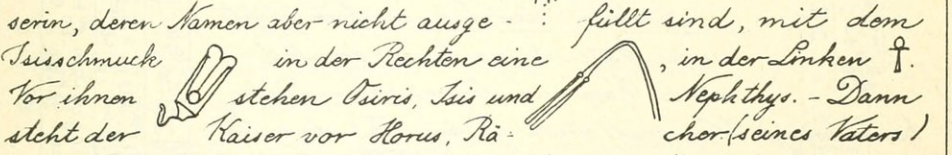 serin, deren Namen aber nicht ausge- füllt sind, mit dem
Isisschmuck in der Rechten eine , in der Linken ☥.
Vor ihnen stehen Osiris, Isis und Nephthys. - Dann
steht der Kaiser vor Horus, Rä- cher (seines Vaters)